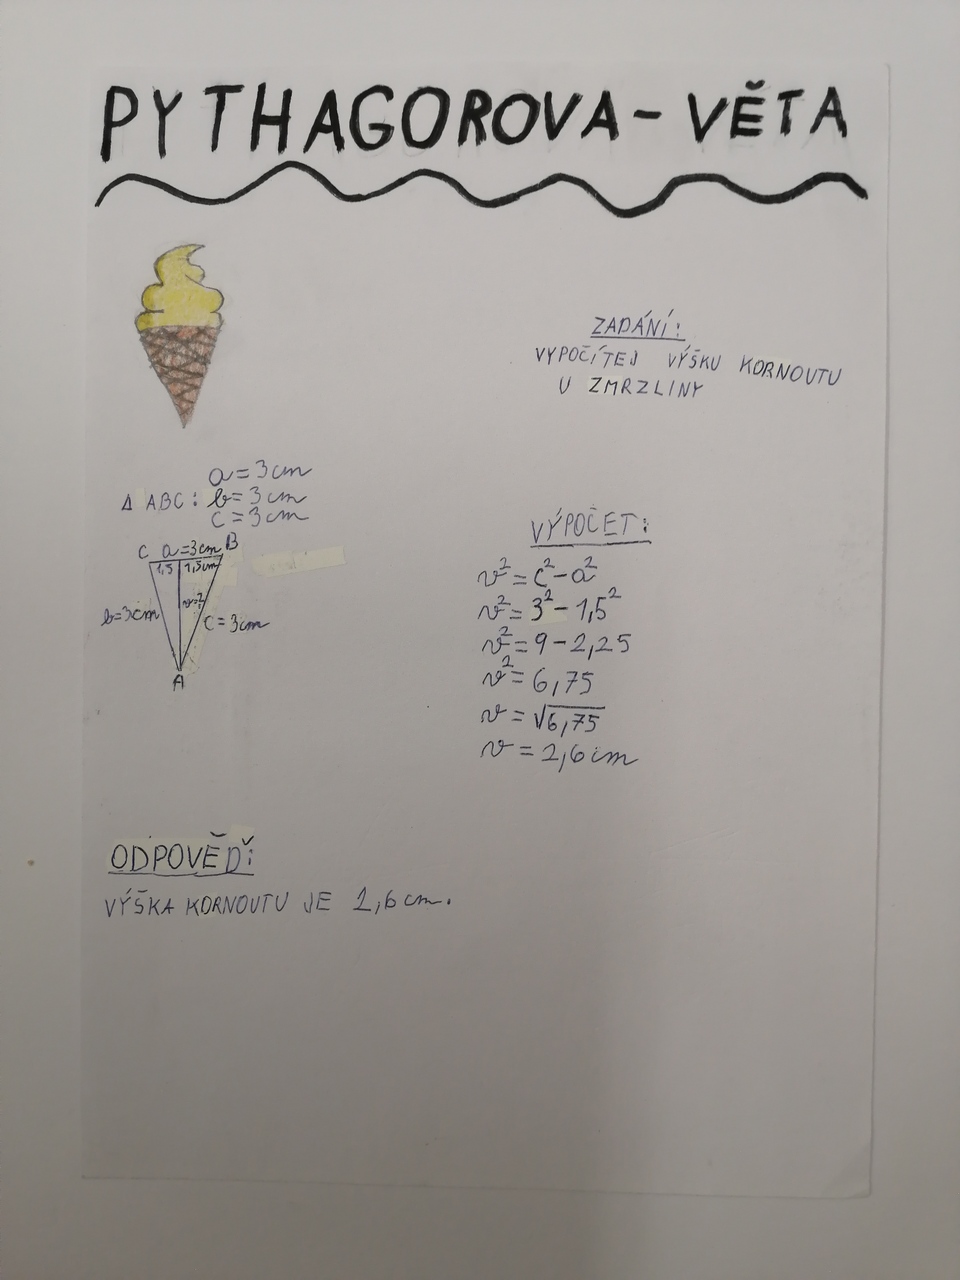 PYTHAGOROVA - VĚTA
ZADÁNÍ:
VYPOČÍTEJ VÝŠKU KORNOUTU
U ZMRZLINY
a = 3 cm
Δ ABC: b = 3 cm
c = 3 cm
C a = 3 cm B
1,5 1,5 cm
v = ?
b = 3 cm
c = 3 cm
A
VÝPOČET:
v² = c² - a²
v² = 3² - 1,5²
v² = 9 - 2,25
v² = 6,75
v = √6,75
v = 2,6 cm
ODPOVĚĎ:
VÝŠKA KORNOUTU JE 2,6 cm.